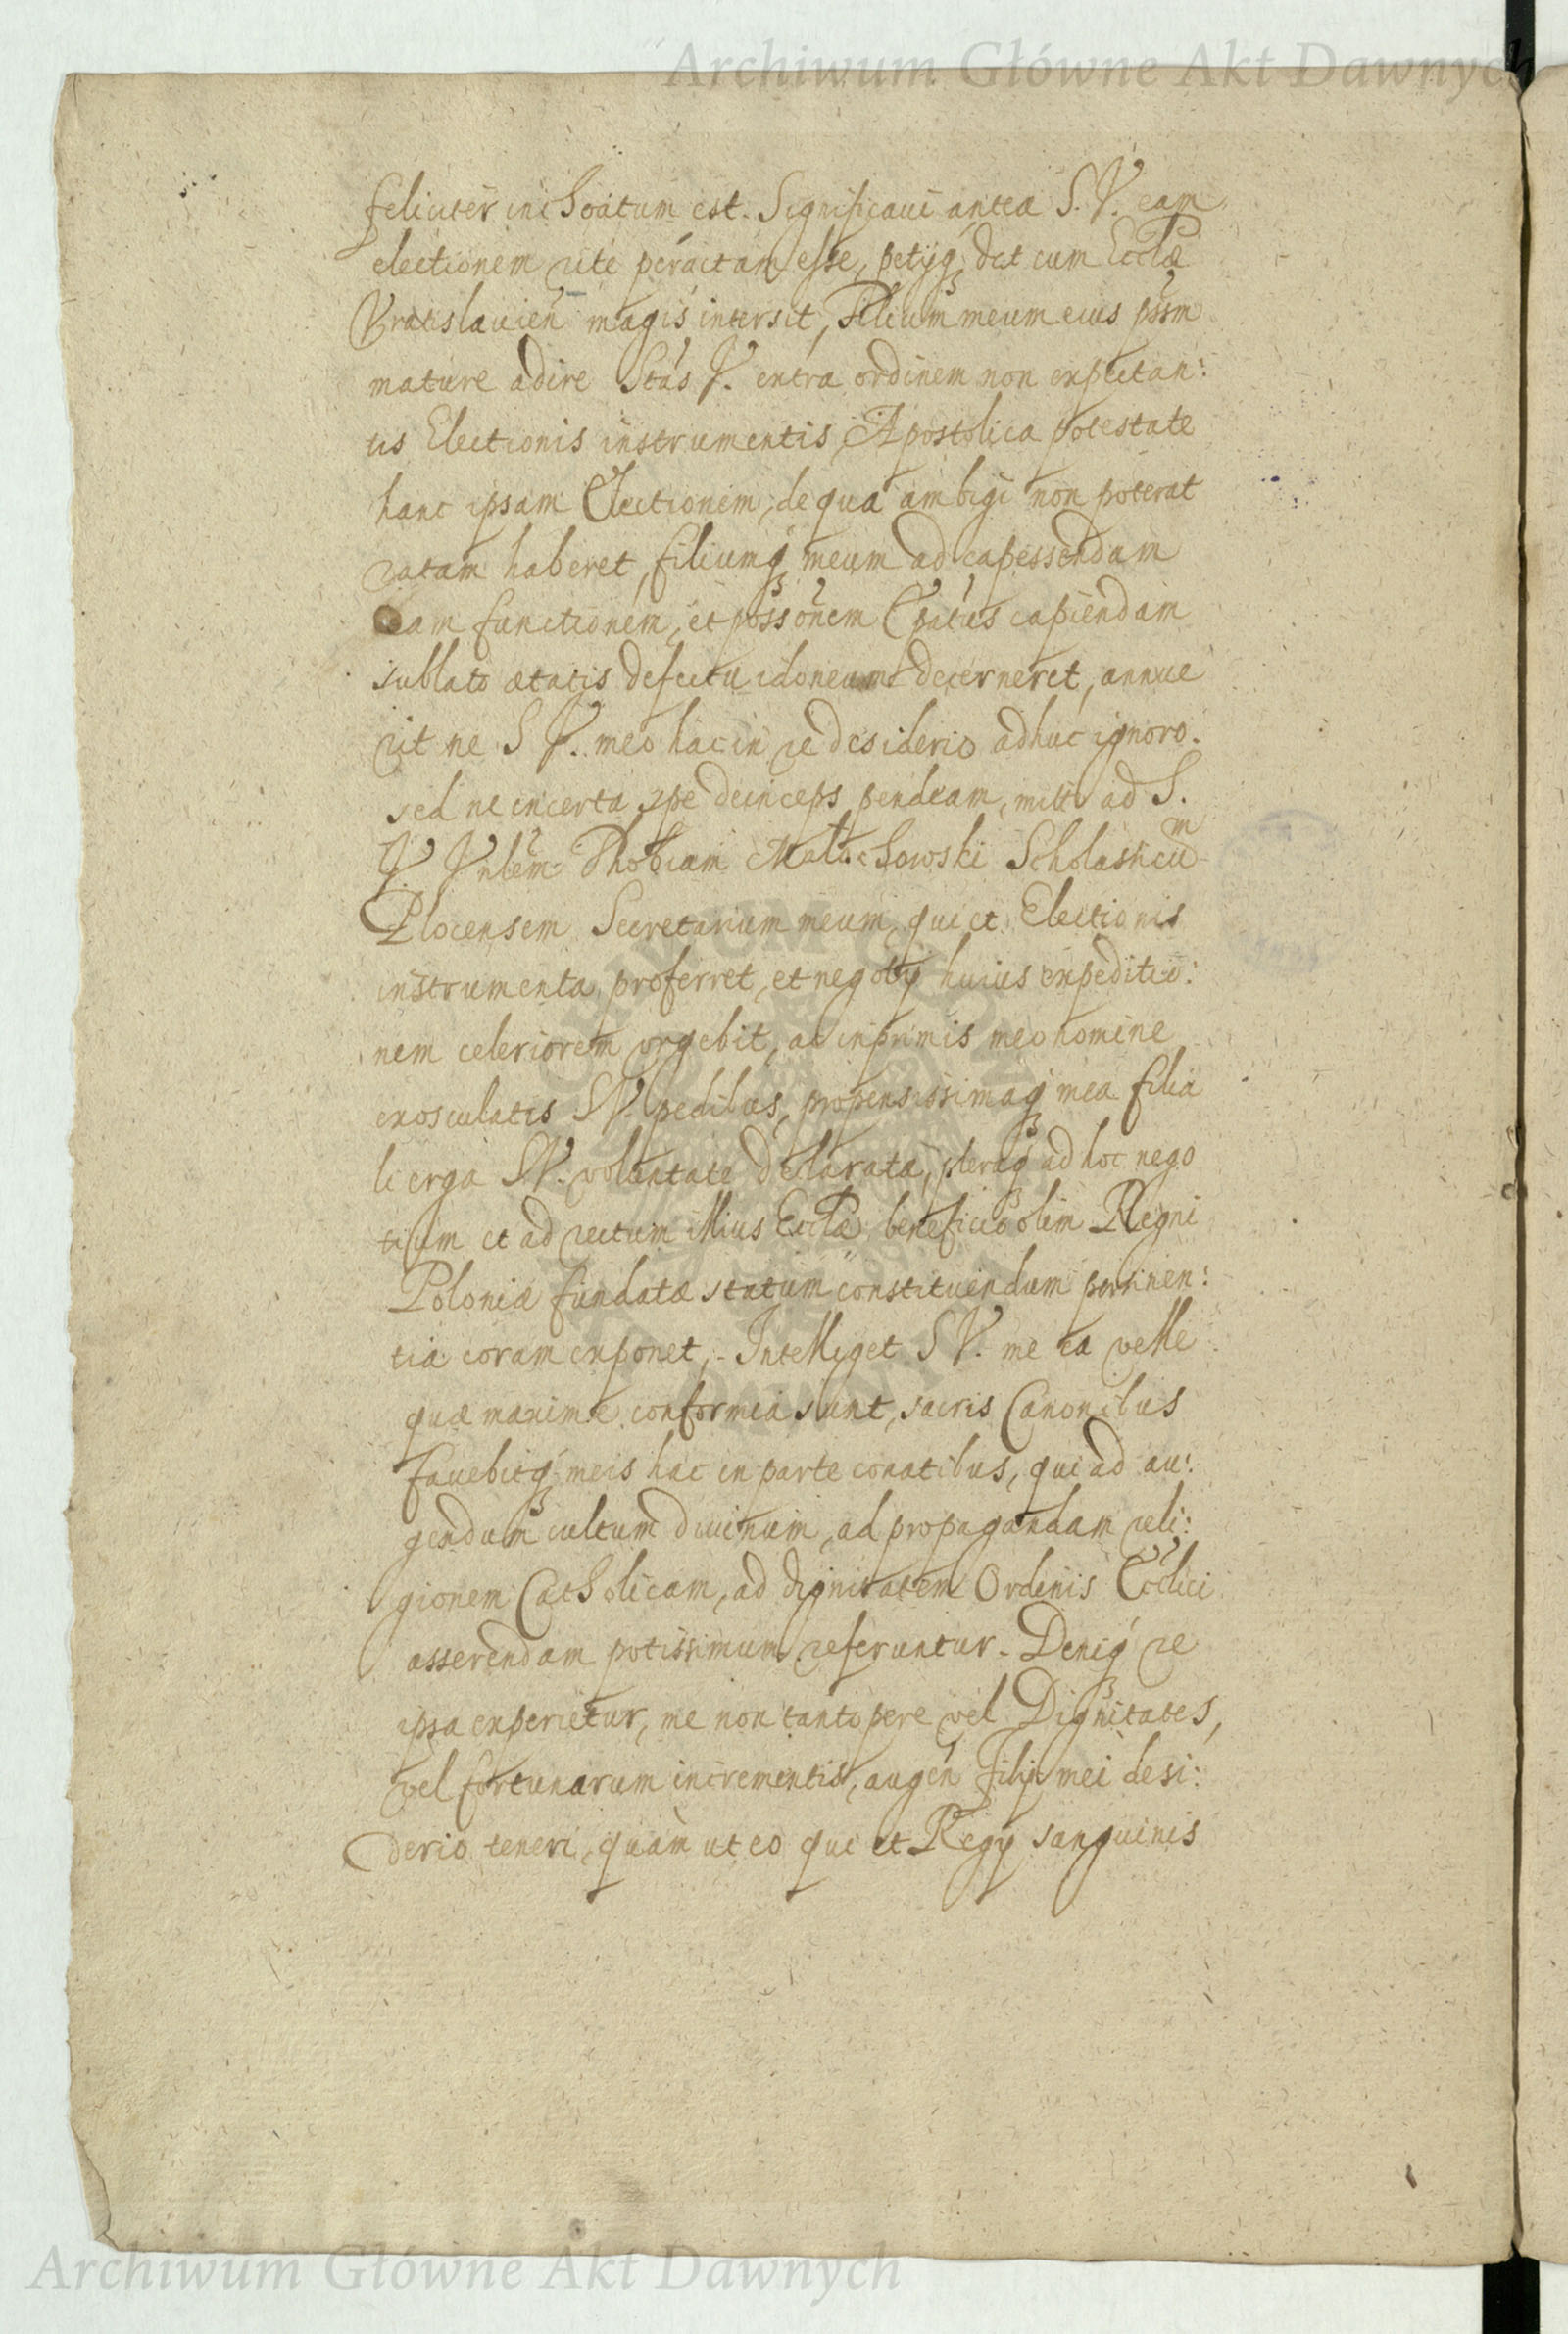 Archiwum Główne Akt Dawnych
feliciter inchoatum est. Significaui antea S. V. eam
electionem rite peractam esse, petijq, ut cum Ecclæ
Vratislauien magis intersit, Filium meum eius pssm
mature adire Stas V. extra ordinem non expectan:
tis Electionis instrumentis, Apostolica potestate
hanc ipsam Electionem, de qua ambigi non poterat
ratam haberet, filiumq meum ad capessendam
eam functionem, et possonem Epatus capiendam
sublato ætatis defectu idoneum decerneret, annue
rit ne S V. meo hac in re desiderio adhuc ignoro.
sed ne incerta spe deinceps pendeam, mitto ad S.
V. Vnlem Thobiam Malachowski Scholasticum
Plocensem Secretarium meum, qui et Electionis
instrumenta proferret, et negotij huius expeditio:
nem celeriorem vrgebit, ac inprimis meo nomine
exosculatis S V. pedibus, propensissimaq mea filia
li erga S V. voluntate declarata, pleraq ad hoc nego
tium et ad rectum illius Ecclæ beneficio olim Regni
Poloniæ fundatæ statum constituendum pertinen:
tia coram exponet, - Intelliget S V. me ea velle
quæ maxime conformia sunt, sacris Canonibus
fauebitq meis hac in parte conatibus, qui ad au:
gendum cultum diuinum, ad propagandam reli:
gionem Catholicam, ad dignitatem Ordinis Ecclici
asserendam potissimum referuntur. Deniq re
ipsa experietur, me non tantopere vel Dignitates,
vel fortunarum incrementis, augen Filij mei desi:
derio teneri, quàm ut eo qui et Regij sanguinis
Archiwum Główne Akt Dawnych